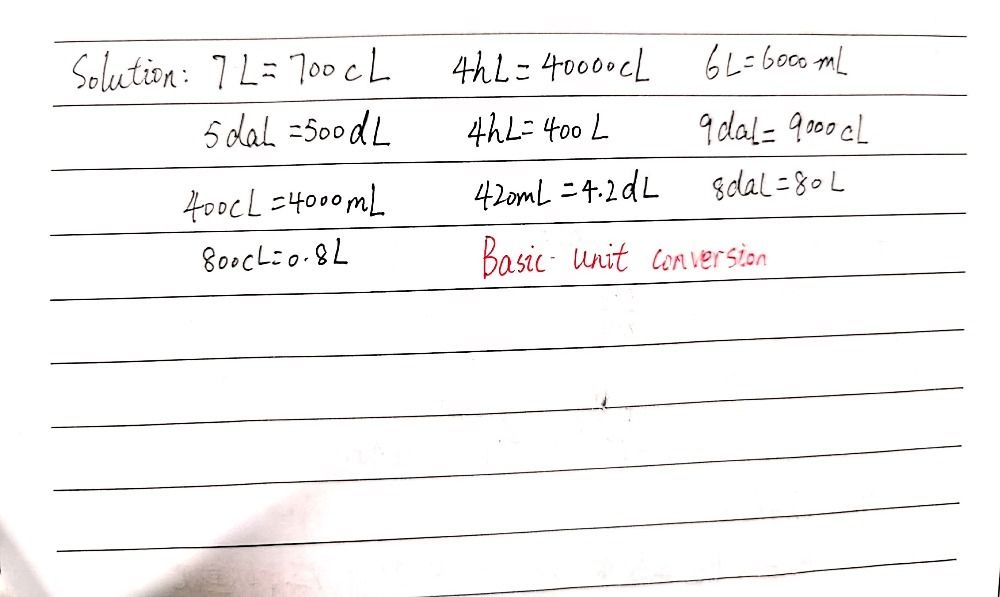 Solution: 7L=700cL 4hL=40000cL 6L=6000mL
5daL=500dL 4hL=400L 9daL=9000cL
400cL=4000mL 420mL=4.2dL 8daL=80L
800cL=0.8L Basic unit conversion